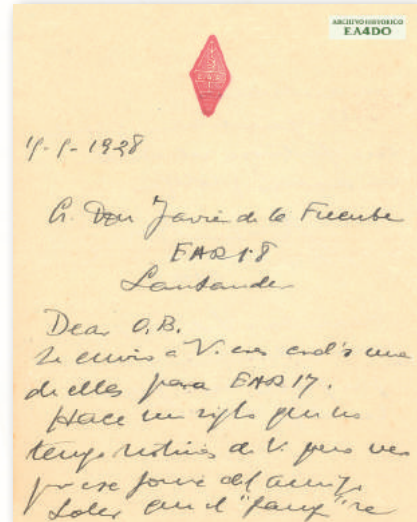 ARCHIVO HISTORICO
EA4DO
1928
Sr. Don Javier de la Fuente
EAR18
Santander
Dear O.B.
Le envio a V. esas crd's una
de ellas para EAR 17.
Hace un siglo que no
tengo noticias de V. pero veo
por ese del amigo
Soler que el